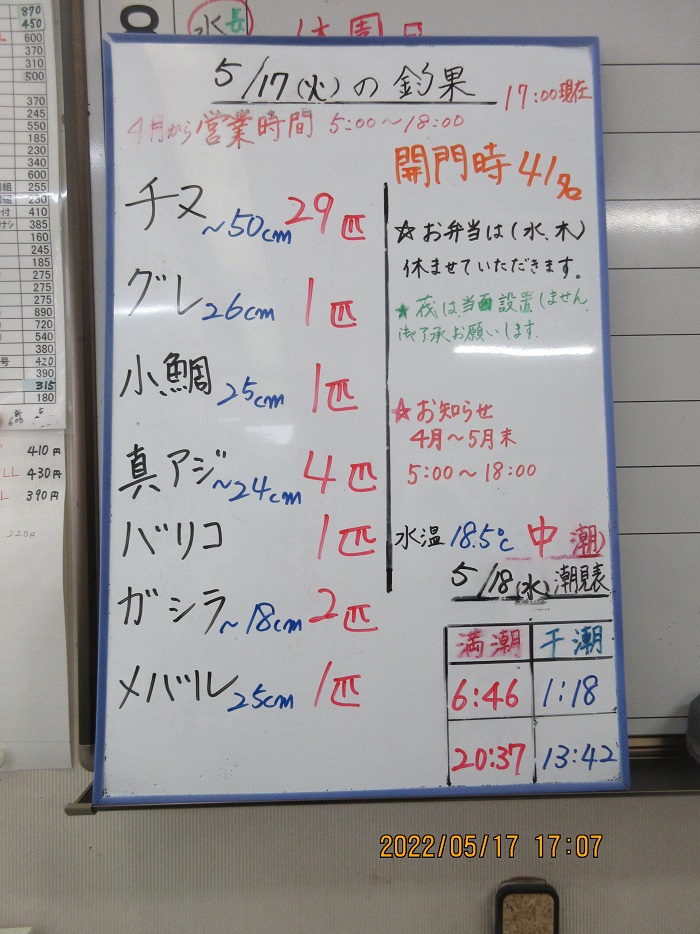 水長 休園日
5/17(火)の釣果
17:00現在
4月から営業時間 5:00～18:00
開門時41名
チヌ ～50cm 29匹
グレ 26cm 1匹
小鯛 25cm 1匹
真アジ ～24cm 4匹
バリコ 1匹
ガシラ ～18cm 2匹
メバル 25cm 1匹
☆お弁当は(水、木)
休ませていただきます。
★筏は当面設置しません
御了承お願いします.
☆お知らせ
4月～5月末
5:00～18:00
水温 18.5℃ 中潮
5/18(水)潮見表
満潮 干潮
6:46 1:18
20:37 13:42
870
450
600
370
310
500
370
245
550
185
230
340
600
255
230
410
385
160
245
185
275
275
275
890
720
540
380
号 420
390
315
180
410円
LL 430円
L 390円
2022/05/17 17:07